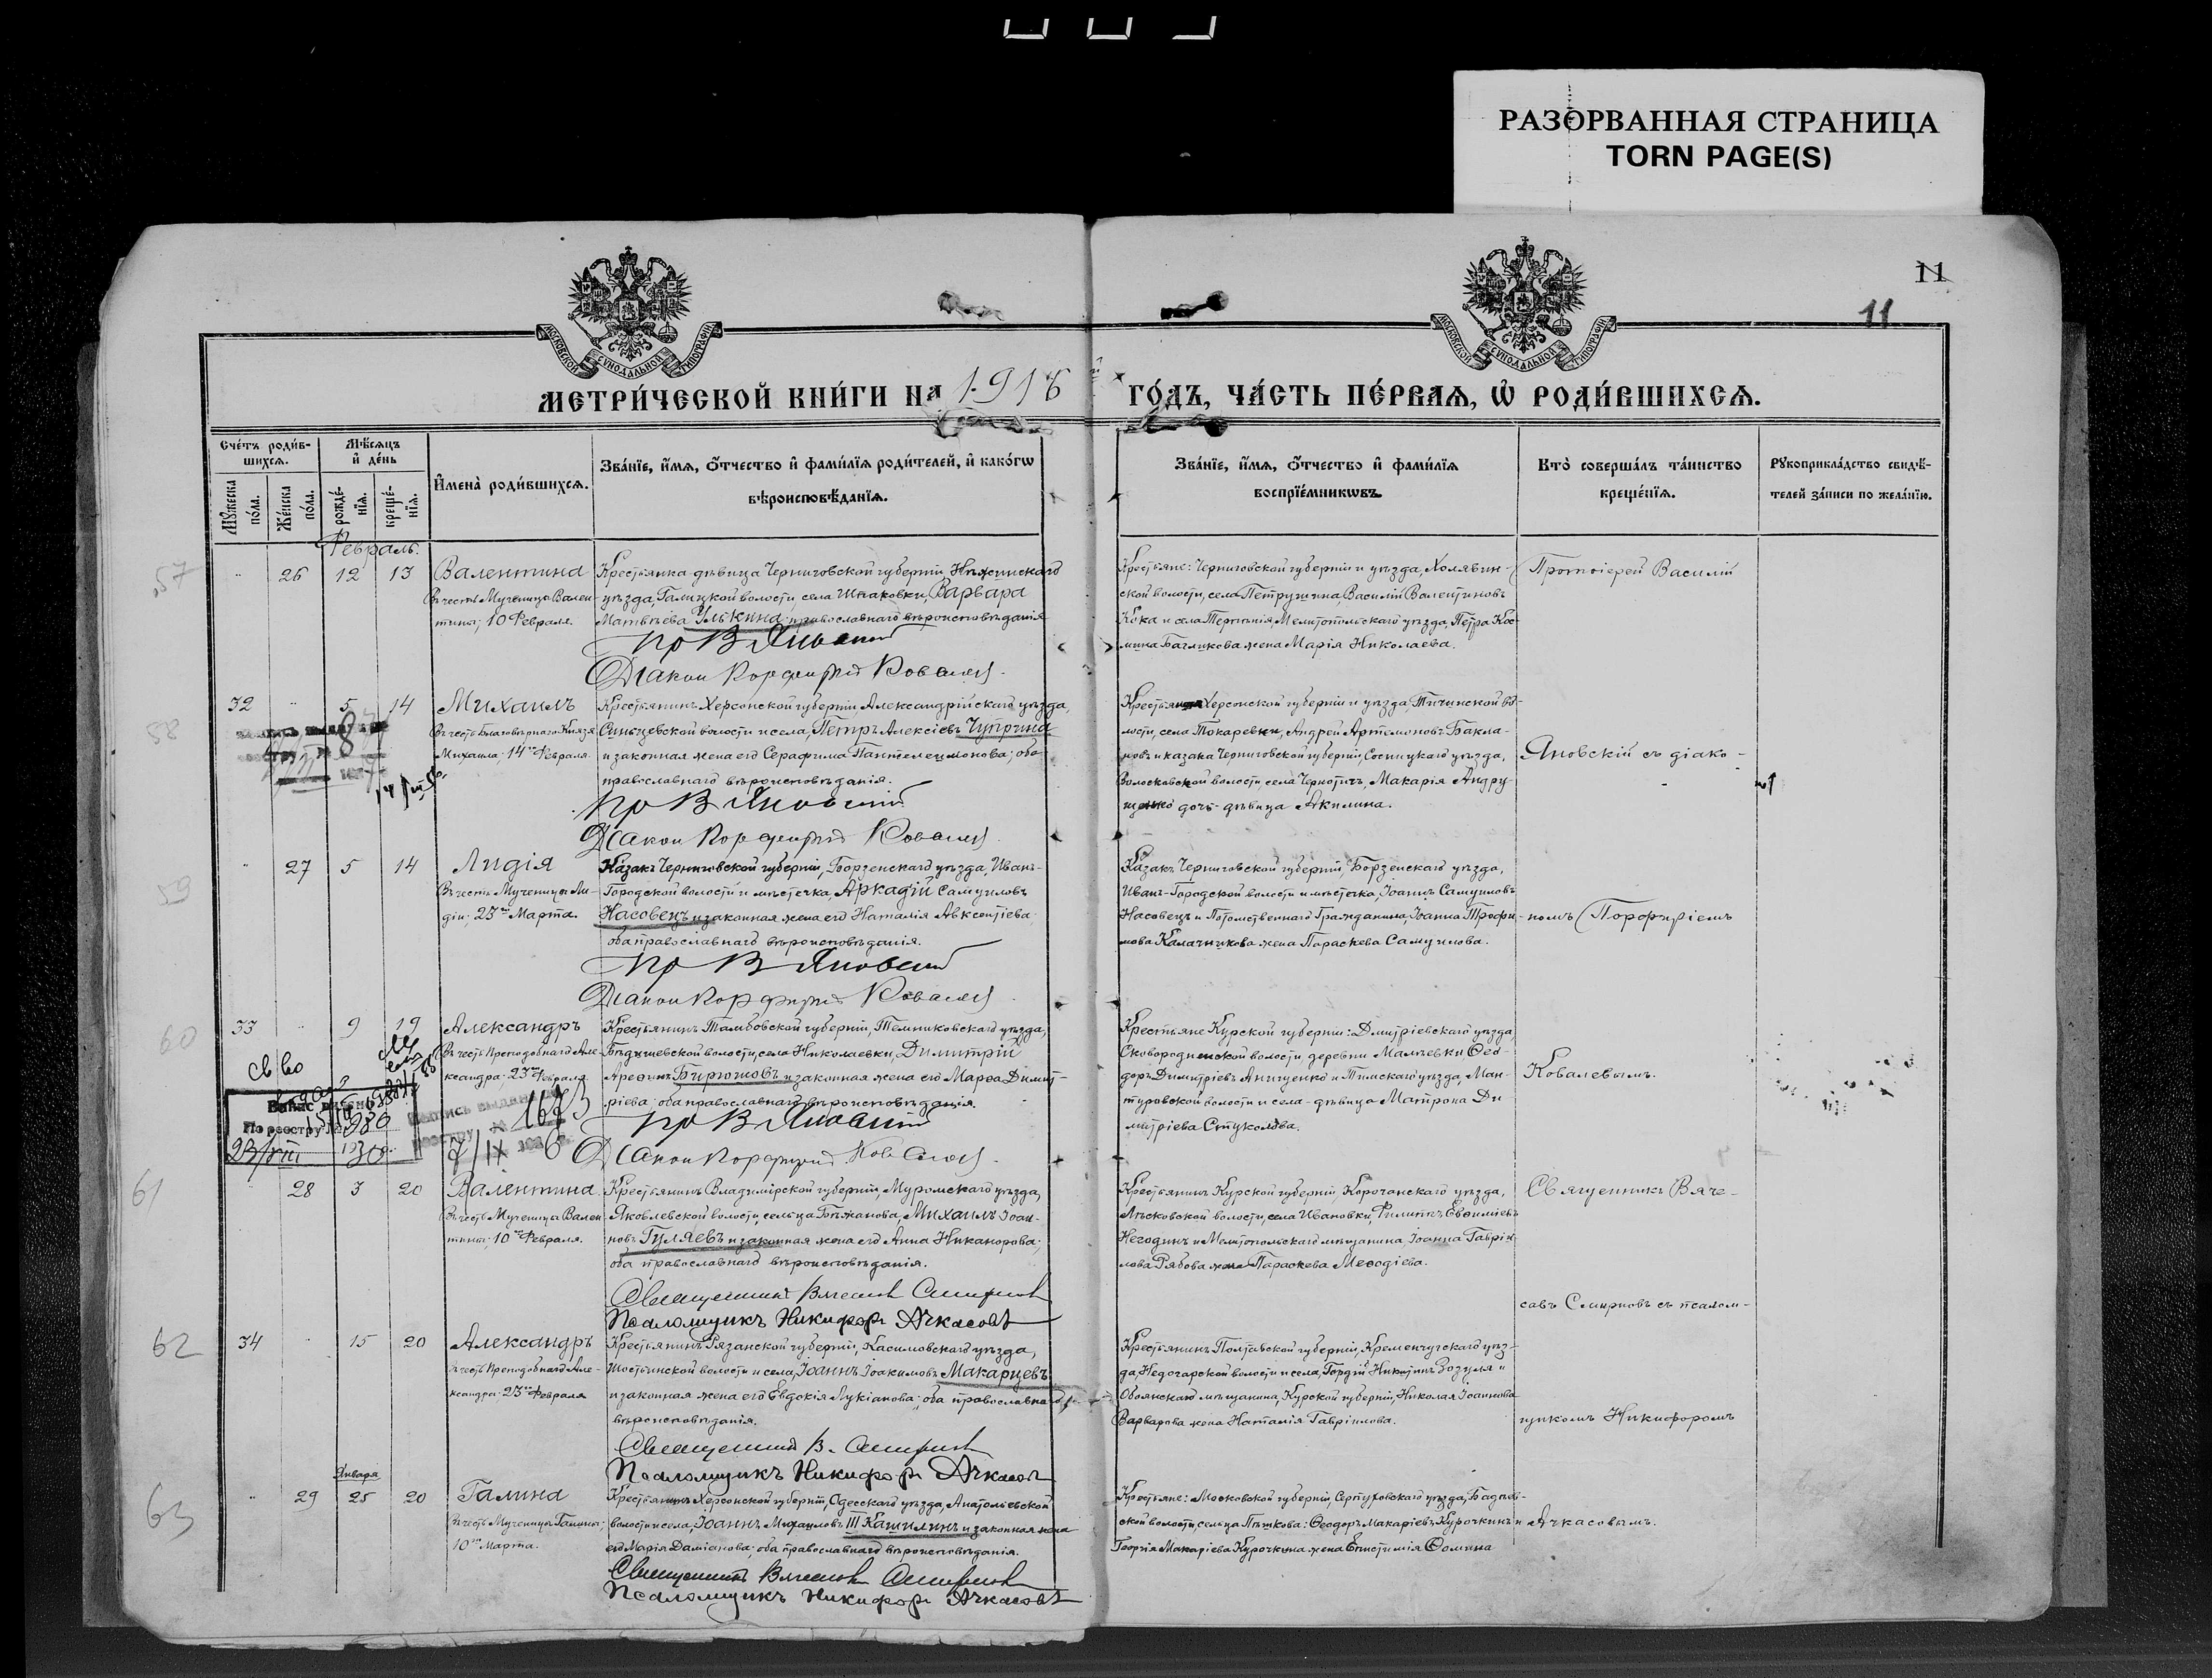 РАЗОРВАННАЯ СТРАНИЦА
TORN PAGE(S)
11
11
МОСКОВСКОЙ СѴНОДАЛЬНОЙ ТИПОГРАФІИ
МОСКОВСКОЙ СѴНОДАЛЬНОЙ ТИПОГРАФІИ
МЕТРИ́ЧЕСКОЙ КНИ́ГИ НА 1918 ГО́ДЪ, ЧА́СТЬ ПЕ́РВАЯ, Ѡ҆ РОДИ́ВШИХСЯ.
Сче́тъ роди́в-
шихсѧ.
Мѣ́сѧцъ
и҆ де́нь
Мꙋ́жеска по́ла.
Же́нска по́ла.
рожде́-
нїѧ.
креще́-
нїѧ.
И҆мена̀ роди́вшихсѧ.
Зва́нїе, и҆́мѧ, ѻ҆́тчество и҆ фами́лїѧ роди́телей, и҆ како́гѡ
вѣроисповѣ́данїѧ.
Зва́нїе, и҆́мѧ, ѻ҆́тчество и҆ фами́лїѧ
воспрїе́мникѡвъ.
Кто̀ соверша́лъ та́инство
креще́нїѧ.
Рꙋкоприкла́дство свидѣ́-
телей за́писи по жела́нїю.
Февраль.
57
26 12 13
Валентина
Въ честь Мученицы Вален-
тины; 10 Февраля.
Крестьянка дѣвица Черниговской губерніи, Нѣжинскаго
уѣзда, Галицкой волости, села Шпаковки, Варвара
Матвѣева Улькина; православнаго вѣроисповѣданія
Пр В Яновскій
Діаконъ Порфирій Ковалев
Крестьяне: Черниговской губерніи и уѣзда, Холявин-
ской волости, села Петрушина, Василій Валентиновъ
Кока и села Терпѣнія, Мелитопольскаго уѣзда, Петра Кос-
мина Багликова жена Марія Николаева.
Протоіерей Василій
58
32 5 14
Михаилъ
Въ честь Благовѣрнаго Князя
Михаила; 14 Февраля.
Крестьянинъ Херсонской губерніи Александрійскаго уѣзда,
волости и села, Петръ Алексіевъ Чуприна
и законная жена его Серафима Пантелеимонова; оба
православнаго вѣроисповѣданія.
Пр В Яновскій
Діаконъ Порфирій Ковалев
Херсонской губерніи и уѣзда, во-
лости, села Токаревки, Андрей Артемоновъ Бакла-
новъ и казака Черниговской губерніи, Сосницкаго уѣзда,
Волосковской волости, села Чернотичъ, Макарія Андру-
щенко дочь - дѣвица Акилина.
Яновскій съ діако-
59
27 5 14
Лидія
Въ честь Мученицы Ли-
діи; 23 Марта.
Казакъ Черниговской губерніи, Борзенскаго уѣзда, Иванъ-
Городской волости и мѣстечка, Аркадій Самуиловъ
Насовецъ и законная жена его Наталія Авксентіева;
оба православнаго вѣроисповѣданія.
Пр В Яновскій
Діаконъ Порфирій Ковалев
Казакъ Черниговской губерніи, Борзенскаго уѣзда,
Иванъ-Городской волости и мѣстечка, Іоаннъ Самуиловъ
Насовецъ и Потомственнаго Гражданина, Іоанна Трофи-
мова Калачникова жена Параскева Самуилова.
номъ Порфиріемъ
60
33 9 19
Александръ
Въ честь Преподобнаго Але-
ксандра; 23 Февраля.
Крестьянинъ Тамбовской губерніи, Темниковскаго уѣзда,
волости, села Николаевки, Димитрій
Бирюковъ и законная жена его Марѳа Димит-
ріева; оба православнаго вѣроисповѣданія.
Пр В Яновскій
Діаконъ Порфирій Ковалев
Крестьяне Курской губерніи: Дмитріевскаго уѣзда,
волости, деревни Малѣевки Ѳео-
доръ Димитріевъ Анищенко и Тимскаго уѣзда, Ман-
туровской волости и села - дѣвица Матрона Ди-
митріева Стуколова.
Ковалевымъ.
По реестру № 980
1673
7/IX
61
28 3 20
Валентина
Въ честь Мученицы Вален-
тины; 10 Февраля.
Крестьянинъ Владимірской губерніи, Муромскаго уѣзда,
Яковлевской волости, сельца Михаилъ Іоан-
новъ Гуляевъ и законная жена его Анна Никанорова;
оба православнаго вѣроисповѣданія.
Священникъ Вячеслав Смирнов
Псаломщикъ Никифоръ Ачкасовъ
Крестьянинъ Курской губерніи, Корочанскаго уѣзда,
волости, села Ивановки, Филиппъ Евѳиміевъ
Негодинъ и Мелитопольскаго мѣщанина, Іоанна Гаврі-
лова Рябова жена Параскева Меѳодіева.
Священникъ Вяче-
славъ Смирновъ съ псалом-
62
34 15 20
Александръ
Въ честь Преподобнаго Але-
ксандра; 23 Февраля
Крестьянинъ Рязанской губерніи, Касимовскаго уѣзда,
волости и села, Іоаннъ Іоакимовъ Макарцевъ
и законная жена его Евдокія Лукіанова; оба православнаго
вѣроисповѣданія.
Священникъ В. Смирнов
Псаломщикъ Никифоръ Ачкасов
Крестьянинъ Полтавской губерніи, Кременчугскаго уѣз-
да, Недогарской волости и села, Гордій Никитинъ Зозуля и
Обоянскаго мѣщанина, Курской губерніи, Николая Іоаннова
Варварова жена Наталія Гавріилова.
щикомъ Никифоромъ
63
Января
29 25 20
Галина
Въ честь Мученицы Галины;
10 Марта.
Крестьянинъ Херсонской губерніи, Одесскаго уѣзда, Анатольевской
волости и села, Іоаннъ Михаиловъ Кашилинъ и законная жена
его Марія Даміанова; оба православнаго вѣроисповѣданія.
Священникъ Вячеслав Смирнов
Псаломщикъ Никифоръ Ачкасовъ
Крестьяне: Московской губерніи, Серпуховскаго уѣзда,
ской волости, сельца Пѣшкова: Ѳеодоръ Макаріевъ Курочкинъ и
Георгія Макаріева Курочкина жена Епистимія Ѳомина
Ачкасовымъ.